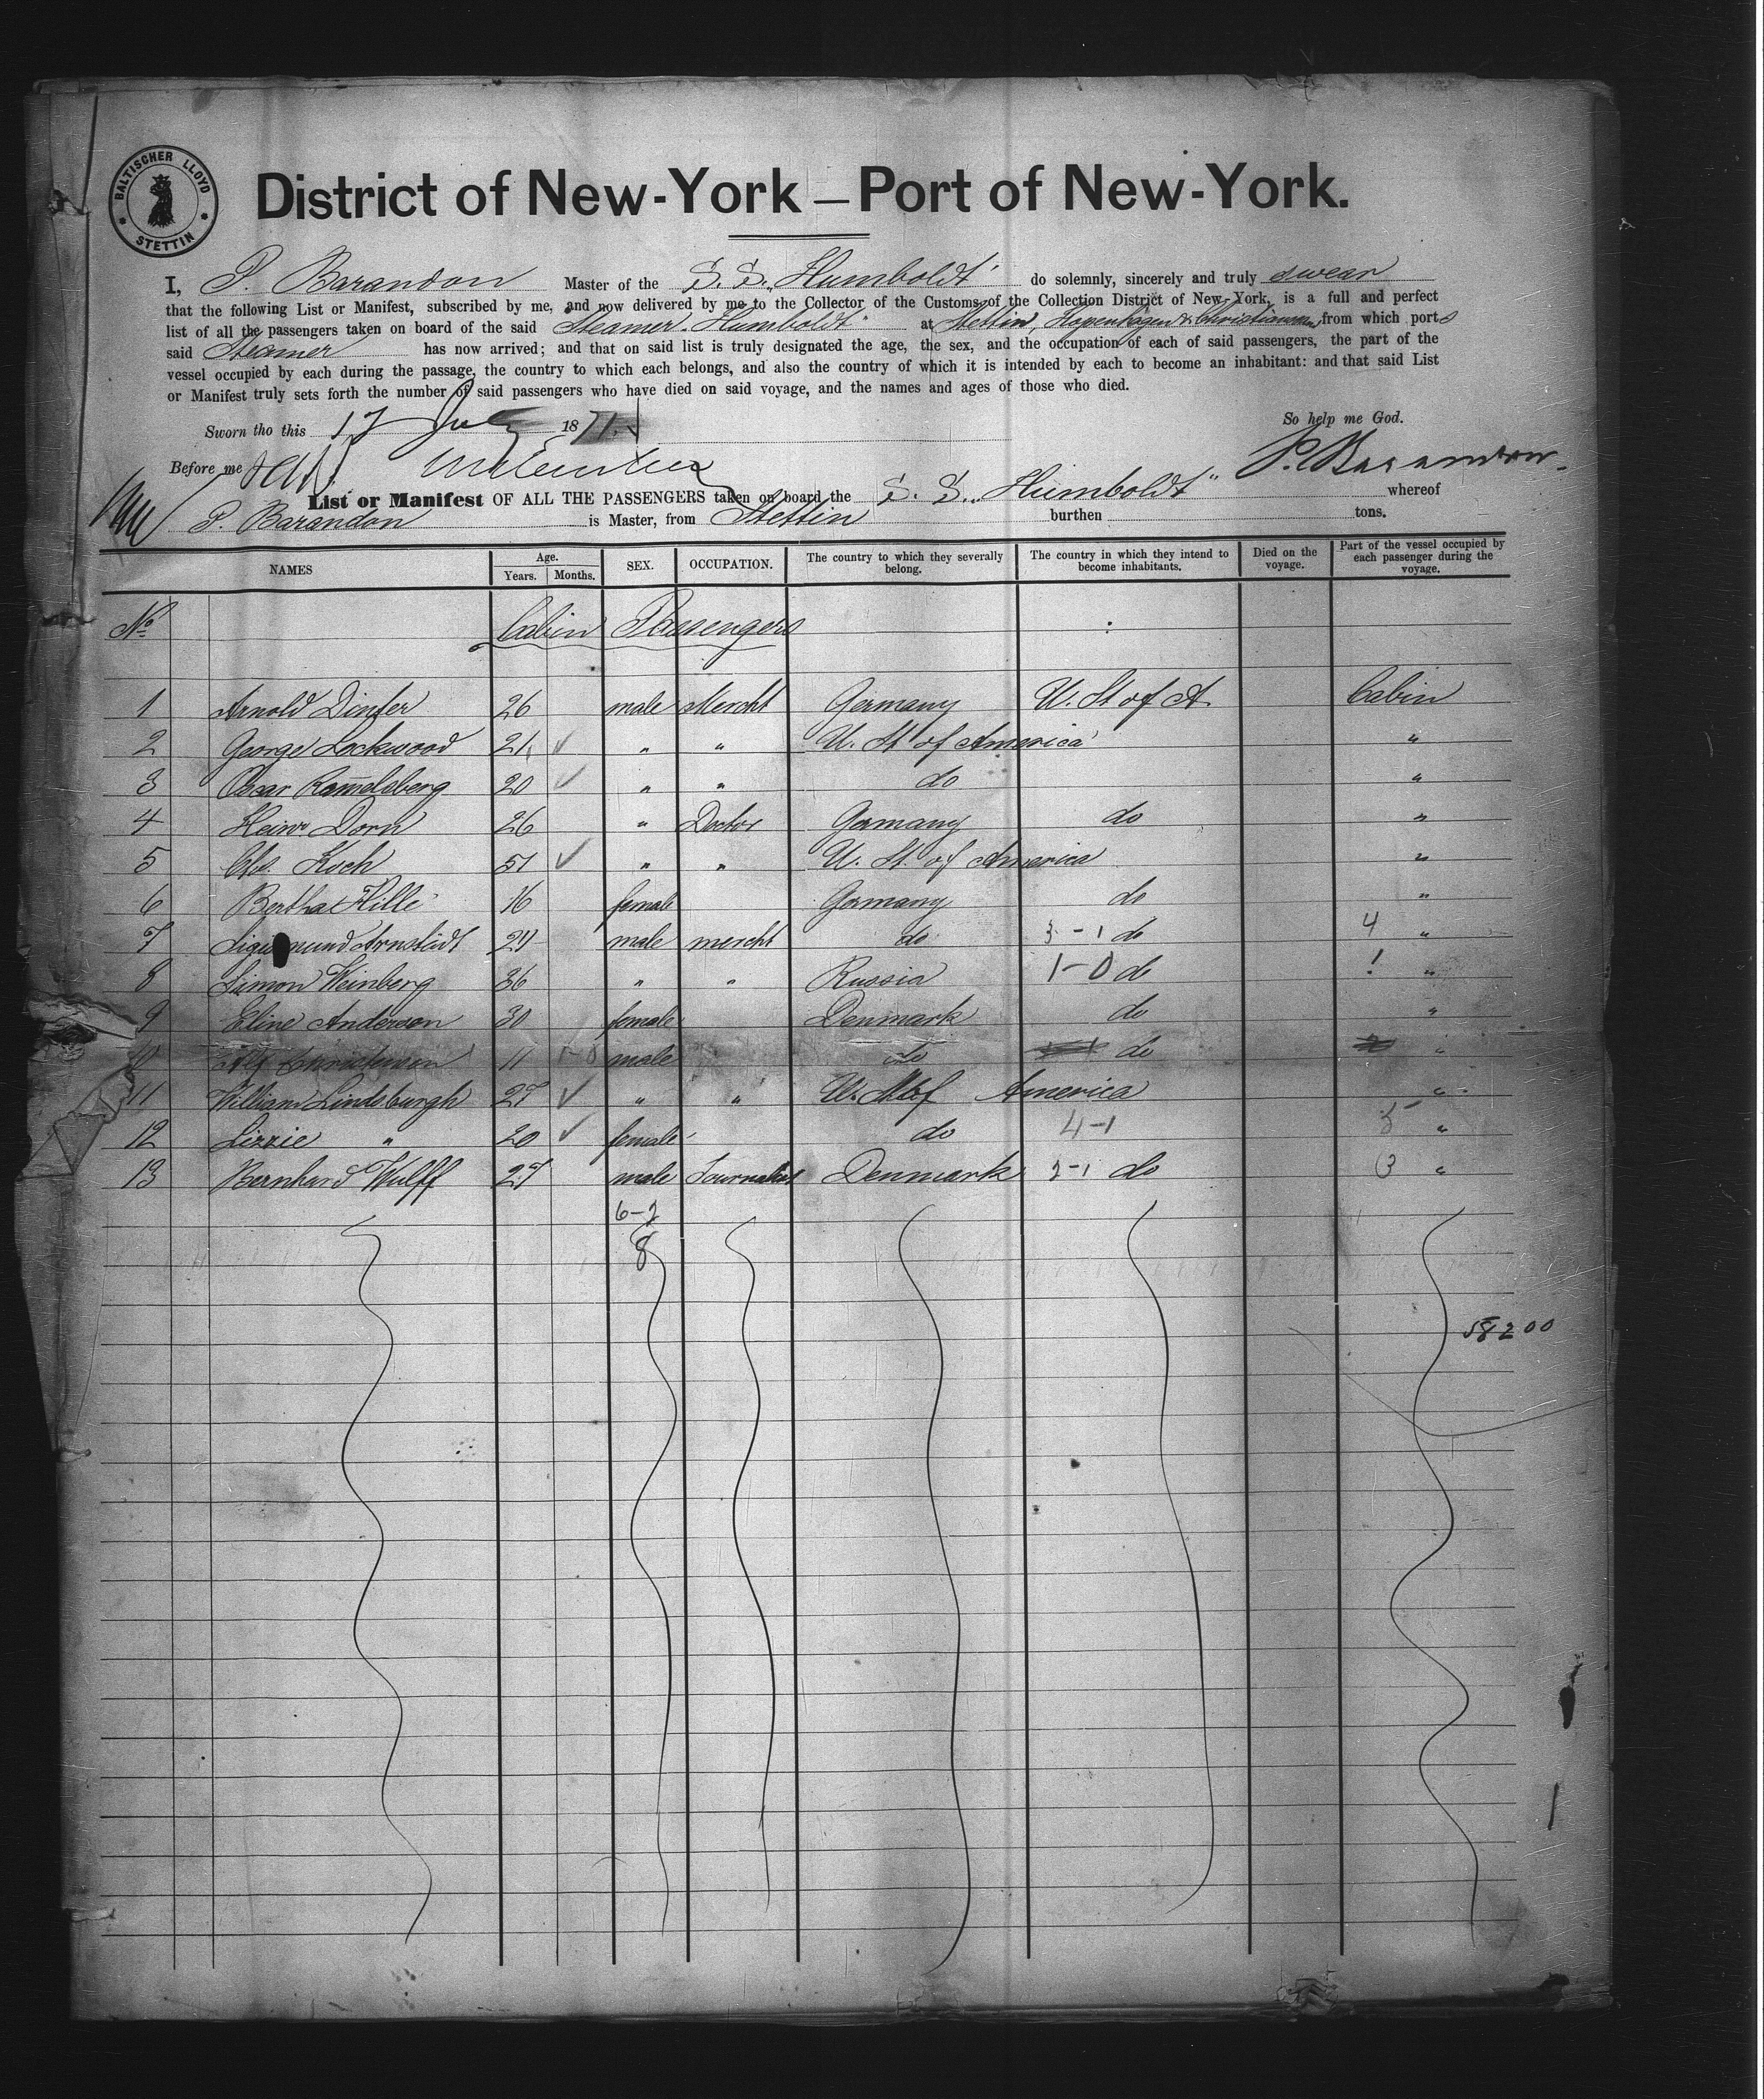 BALTISCHER LLOYD
STETTIN
District of New-York — Port of New-York.
I, P. Barandon Master of the S. S. „Humboldt" do solemnly, sincerely and truly swear
that the following List or Manifest, subscribed by me, and now delivered by me to the Collector of the Customs of the Collection District of New-York, is a full and perfect
list of all the passengers taken on board of the said Steamer Humboldt at Stettin, Kopenhagen & Christiansand from which ports
said Steamer has now arrived; and that on said list is truly designated the age, the sex, and the occupation of each of said passengers, the part of the
vessel occupied by each during the passage, the country to which each belongs, and also the country of which it is intended by each to become an inhabitant: and that said List
or Manifest truly sets forth the number of said passengers who have died on said voyage, and the names and ages of those who died.
Sworn tho this 17 July 1871. So help me God.
Before me P. Barandon.
List or Manifest OF ALL THE PASSENGERS taken on board the S. S. „Humboldt" whereof
P. Barandon is Master, from Stettin burthen tons.
NAMES Age. Years. Months. SEX. OCCUPATION. The country to which they severally belong. The country in which they intend to become inhabitants. Died on the voyage. Part of the vessel occupied by each passenger during the voyage.
No Cabin Passengers
1 Arnold 26 male Mercht Germany U. St of A. Cabin
2 George Lockwood 21 " " U. St of America "
3 Oscar Ram̄elsberg 20 " " do "
4 Heinr Dorn 26 " Doctor Germany do "
5 Chs. Koch 51 " " U. St. of America "
6 Bertha Hille 16 female Germany do "
7 Sigismund Arnstädt 24 male mercht do 3-1 do 4 "
8 Simon Weinberg 36 " " Russia 1-0 do 1 "
9 Eline Anderson 30 female Denmark do "
10 11 male do do "
11 William Lindsburgh 27 " " U. St of America "
12 Lizzie " 20 female do 4-1 5 "
13 Bernhard Wulff 27 male Journalist Denmark 2-1 do 3 "
6-2
8
58200